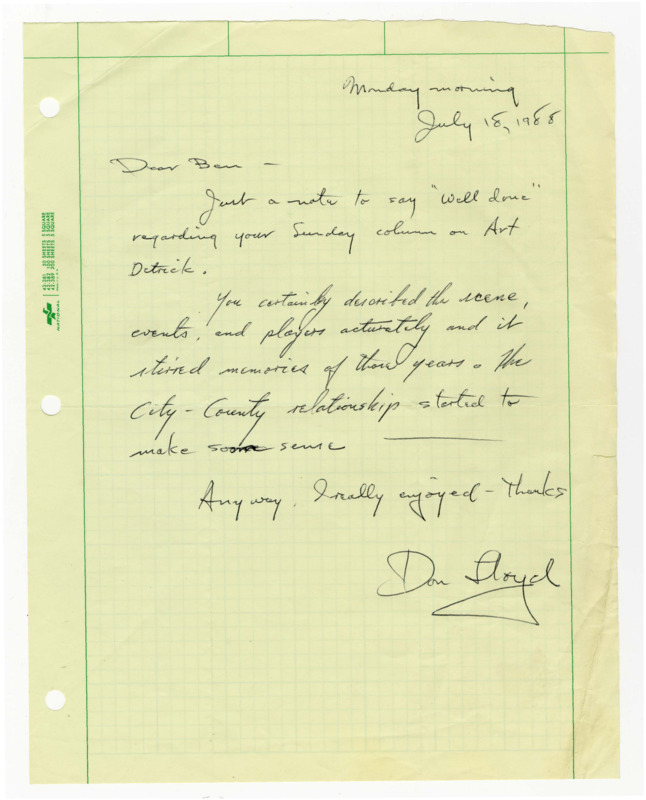 Monday morning
July 18, 1988
Dear Ben –
Just a note to say "Well done"
regarding your Sunday column on Art
Detrick.
You certainly described the scene,
events, and players accurately and it
stirred memories of those years. The
City-County relationship started to
make sense
Anyway, I really enjoyed – Thanks
Don Lloyd